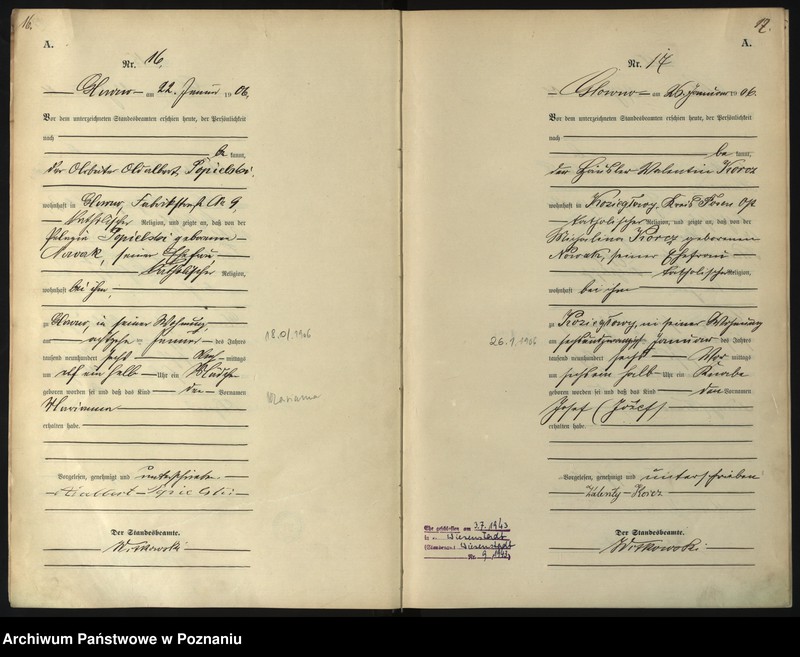 16.
A.
Nr. 16.
am 22. Januar 1906.
Vor dem unterzeichneten Standesbeamten erschien heute, der Persönlichkeit
nach
be kannt,
der Arbeiter Adalbert Sypielski,
wohnhaft in Glowno, Fabrikstraße No 9,
katholischer Religion, und zeigte an, daß von der
Sypielski geborenen
Nowak, seiner Ehefrau
katholischer Religion,
wohnhaft bei ihm,
zu Glowno, in seiner Wohnung,
am achtzehn ten Januar des Jahres
tausend neunhundert sechs Nach mittags
um elf ein halb Uhr ein Mädchen
geboren worden sei und daß das Kind den Vornamen
Marianna
erhalten habe.
Vorgelesen, genehmigt und unterschrieben
Adalbert Sypielski
Der Standesbeamte.
Witkowski
18.01.1906
Marianna
17.
A.
Nr. 17
Glowno am 26. Januar 1906.
Vor dem unterzeichneten Standesbeamten erschien heute, der Persönlichkeit
nach
be kannt,
der Häusler Valentin Korcz
wohnhaft in Koziegłowy, Kreis Posen Ost
katholischer Religion, und zeigte an, daß von der
Michalina Korcz geborenen
Nowak, seiner Ehefrau
katholischer Religion,
wohnhaft bei ihm
zu Koziegłowy, in seiner Wohnung
am sechsundzwanzigsten Januar des Jahres
tausend neunhundert sechs Vor mittags
um sechs ein halb Uhr ein Knabe
geboren worden sei und daß das Kind den Vornamen
Josef (Józef)
erhalten habe.
Vorgelesen, genehmigt und unterschrieben
Walenty Korcz
Der Standesbeamte.
Witkowski
26.1.1906
Ehe geschlossen am 3.7.1943
in Wiesenstadt
(Standesamt Wiesenstadt
Nr. 9/1943)
Archiwum Państwowe w Poznaniu